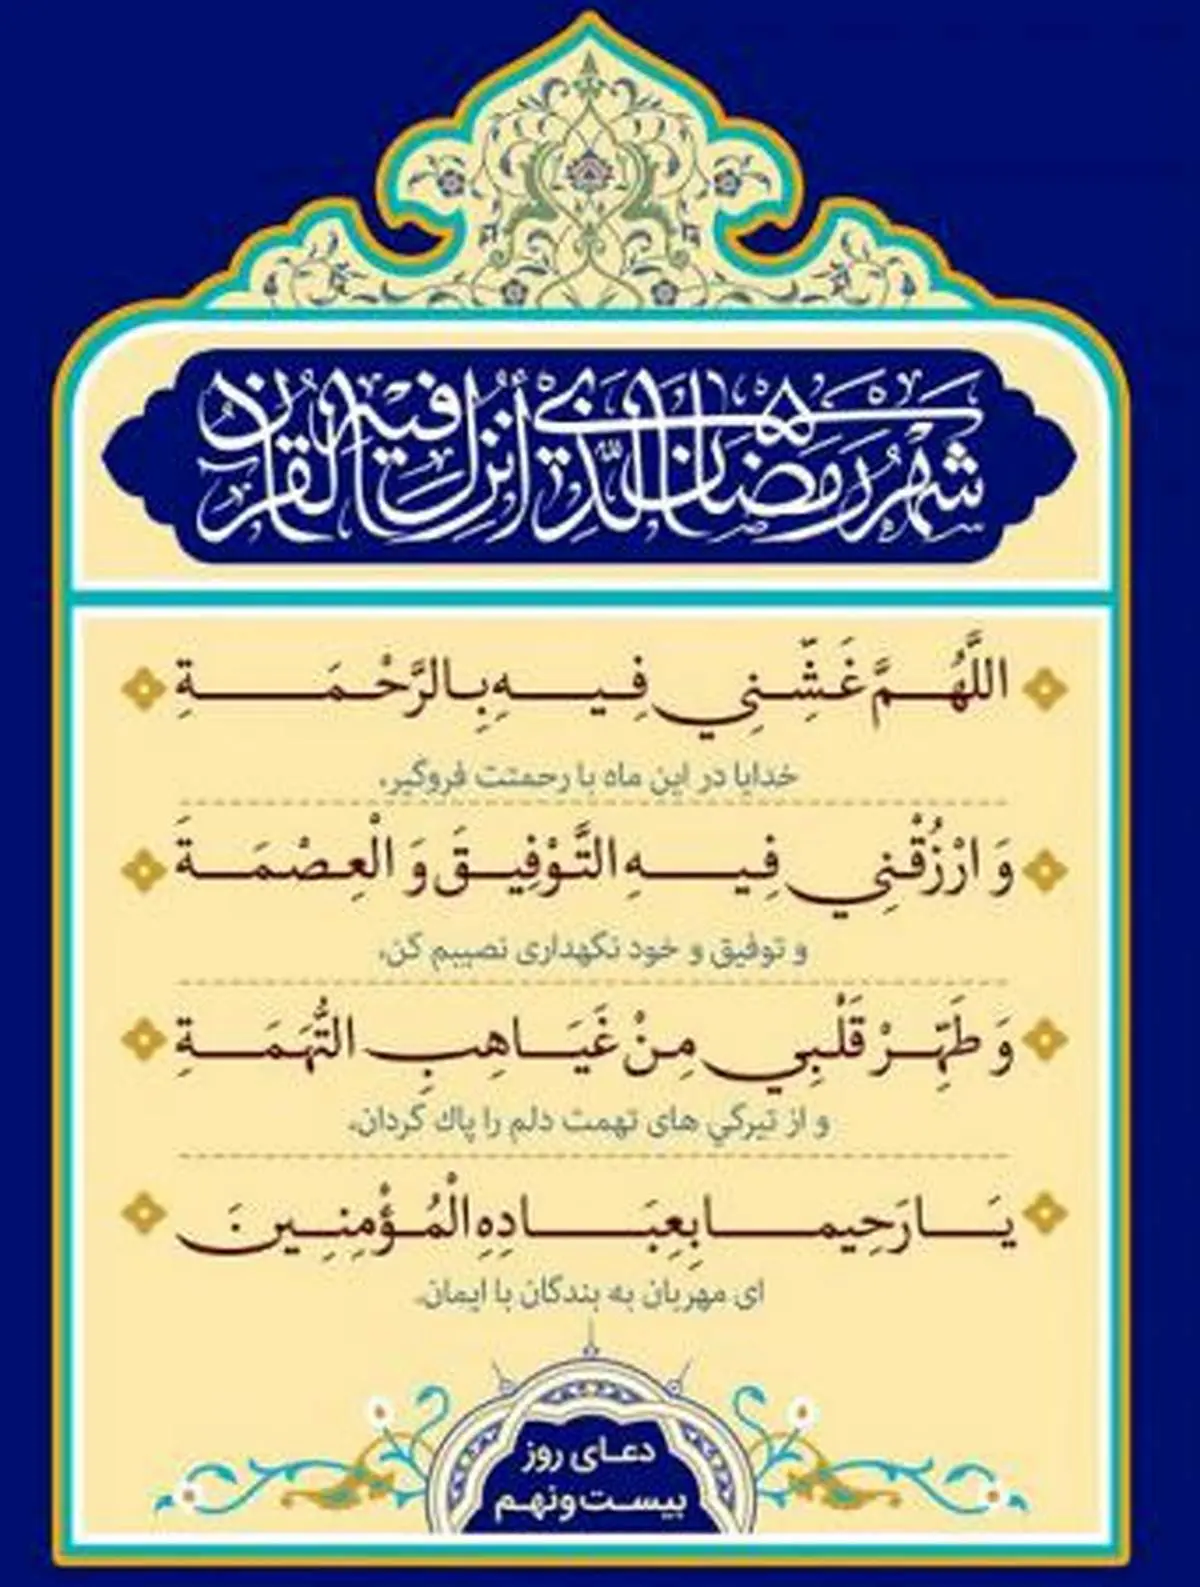 شَهْرُ رَمَضَانَ الَّذِي أُنْزِلَ فِيهِ الْقُرْآنُ
اللَّهُمَّ غَشِّنِي فِيهِ بِالرَّحْمَةِ
خدایا در این ماه با رحمتت فروگیر،
وَ ارْزُقْنِي فِيهِ التَّوْفِيقَ وَ الْعِصْمَةَ
و توفیق و خود نگهداری نصیبم کن،
وَ طَهِّرْ قَلْبِي مِنْ غَيَاهِبِ التُّهَمَةِ
و از تیرگي های تهمت دلم را پاك گردان،
يَا رَحِيما بِعِبَادِهِ الْمُؤْمِنِينَ
ای مهربان به بندگان با ایمان.
دعای روز
بیست‌ونهم